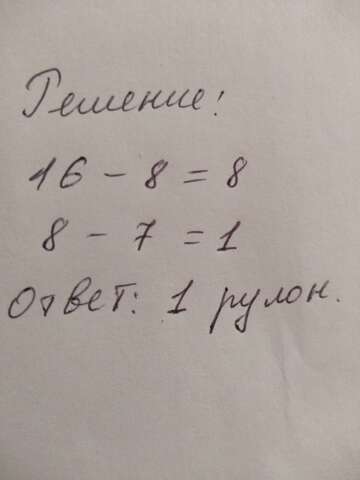 Решение:
16 - 8 = 8
8 - 7 = 1
Ответ: 1 рулон.